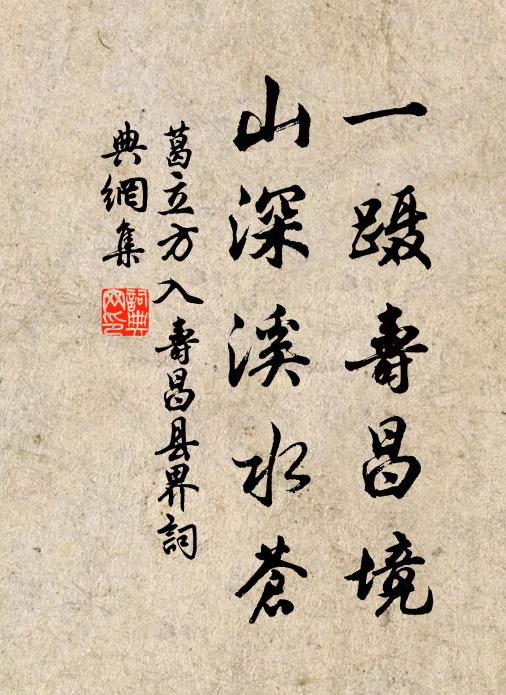 一蹑寿昌境
山深溪水苍
葛立方入寿昌县界词
典网集
詞典
网印